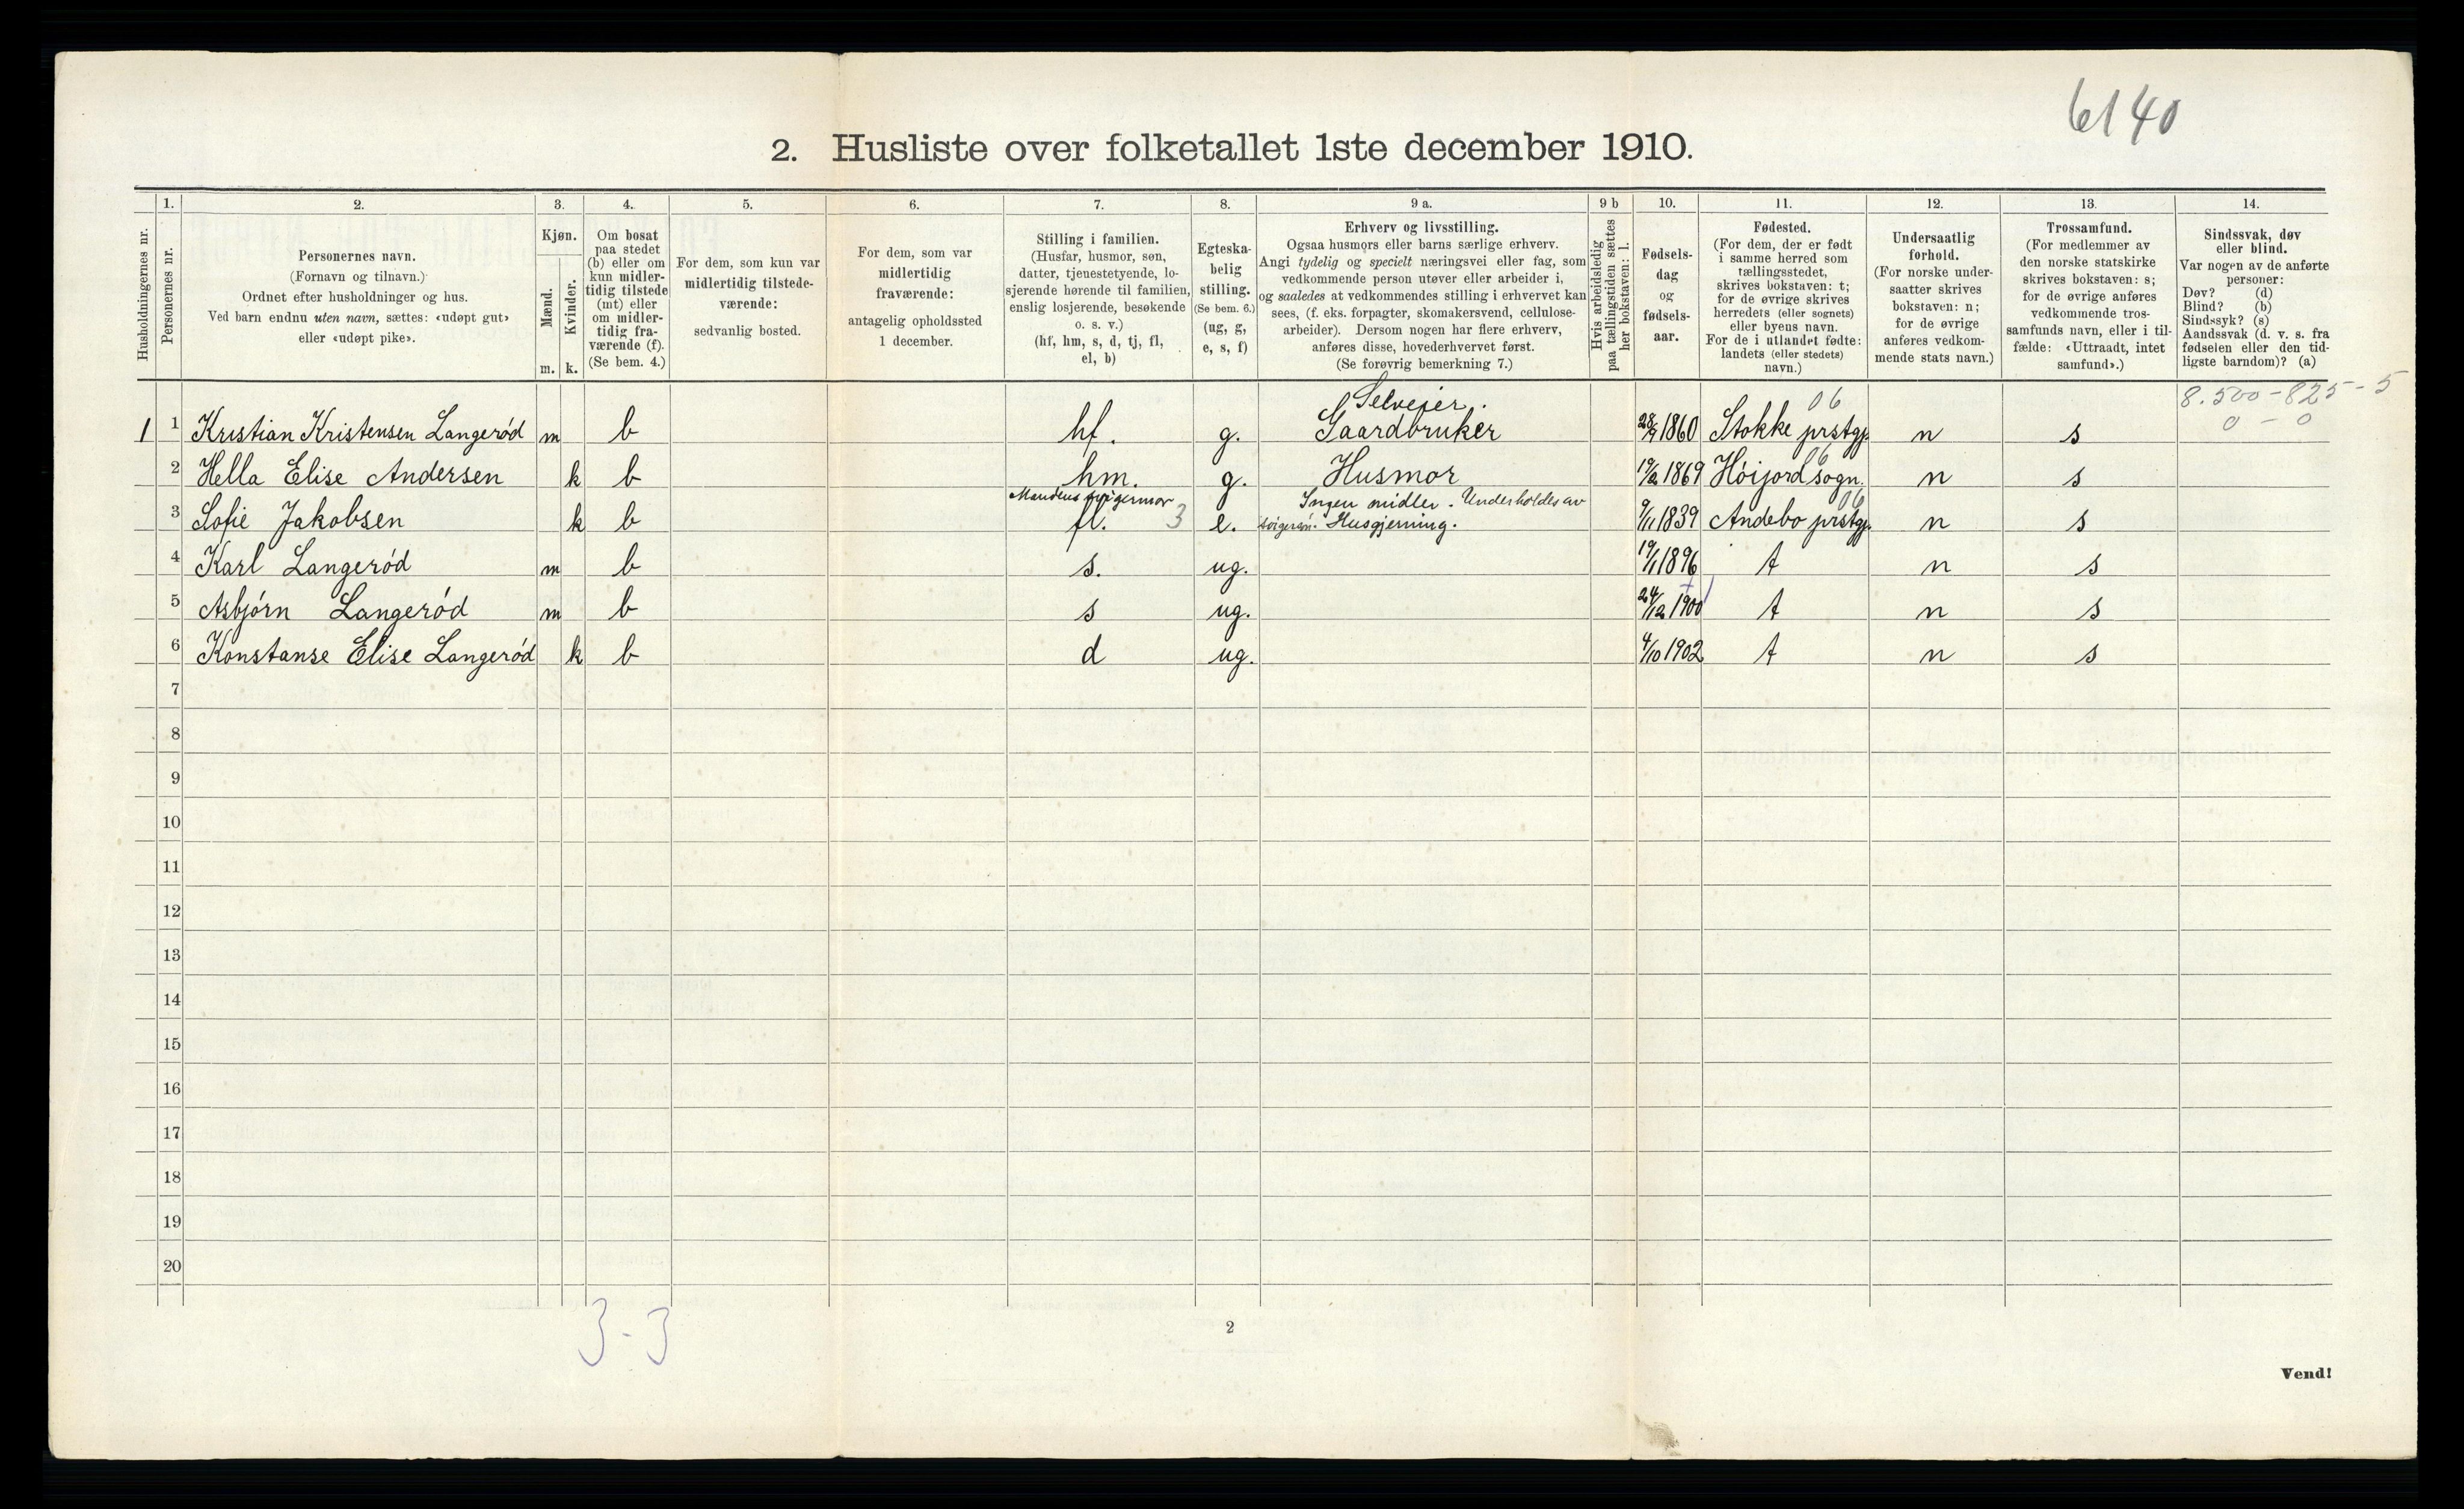 6140
2. Husliste over folketallet 1ste december 1910.
1. 2. 3. 4. 5. 6. 7. 8. 9 a. 9 b 10. 11. 12. 13. 14.
Husholdningernes nr.
Personernes nr.
Personernes navn.
(Fornavn og tilnavn.)
Ordnet efter husholdninger og hus.
Ved barn endnu uten navn, sættes: «udøpt gut»
eller «udøpt pike».
Kjøn.
Mænd.
Kvinder.
m. k.
Om bosat
paa stedet
(b) eller om
kun midler-
tidig tilstede
(mt) eller
om midler-
tidig fra-
værende (f).
(Se bem. 4.)
For dem, som kun var
midlertidig tilstede-
værende:
sedvanlig bosted.
For dem, som var
midlertidig
fraværende:
antagelig opholdssted
1 december.
Stilling i familien.
(Husfar, husmor, søn,
datter, tjenestetyende, lo-
sjerende hørende til familien,
enslig losjerende, besøkende
o. s. v.)
(hf, hm, s, d, tj, fl,
el, b)
Egteska-
belig
stilling.
(Se bem. 6.)
(ug, g,
e, s, f)
Erhverv og livsstilling.
Ogsaa husmors eller barns særlige erhverv.
Angi tydelig og specielt næringsvei eller fag, som
vedkommende person utøver eller arbeider i,
og saaledes at vedkommendes stilling i erhvervet kan
sees, (f. eks. forpagter, skomakersvend, cellulose-
arbeider). Dersom nogen har flere erhverv,
anføres disse, hovederhvervet først.
(Se forøvrig bemerkning 7.)
Hvis arbeidsledig
paa tællingstiden sættes
her bokstaven: l.
Fødsels-
dag
og
fødsels-
aar.
Fødested.
(For dem, der er født
i samme herred som
tællingsstedet,
skrives bokstaven: t;
for de øvrige skrives
herredets (eller sognets)
eller byens navn.
For de i utlandet fødte:
landets (eller stedets)
navn.)
Undersaatlig
forhold.
(For norske under-
saatter skrives
bokstaven: n;
for de øvrige
anføres vedkom-
mende stats navn.)
Trossamfund.
(For medlemmer av
den norske statskirke
skrives bokstaven: s;
for de øvrige anføres
vedkommende tros-
samfunds navn, eller i til-
fælde: «Uttraadt, intet
samfund».)
Sindssvak, døv
eller blind.
Var nogen av de anførte
personer:
Døv? (d)
Blind? (b)
Sindssyk? (s)
Aandssvak (d. v. s. fra
fødselen eller den tid-
ligste barndom)? (a)
Selvejer. 06 8.500-825-5
1 1 Kristian Kristensen Langerød m b hf. g. Gaardbruker 28/9 1860 Stokke prstgj. n s 0 - 0
06
2 Hella Elise Andersen k b hm. g. Husmor 19/2 1869 Höijord sogn. n s
Mandens svigermor Ingen midler. Underholdes av 06
3 Sofie Jakobsen k b fl. 3 e. svigersön. Husgjerning. 9/11 1839 Andebo prstgj. n s
4 Karl Langerød m b s. ug. 19/1 1896 t n s
5 Asbjörn Langerød m b s ug. 24/12 1900 t n s
6 Konstanse Elise Langerød k b d ug. 4/10 1902 t n s
7
8
9
10
11
12
13
14
15
16
17
18
19
20
3-3
2
Vend!